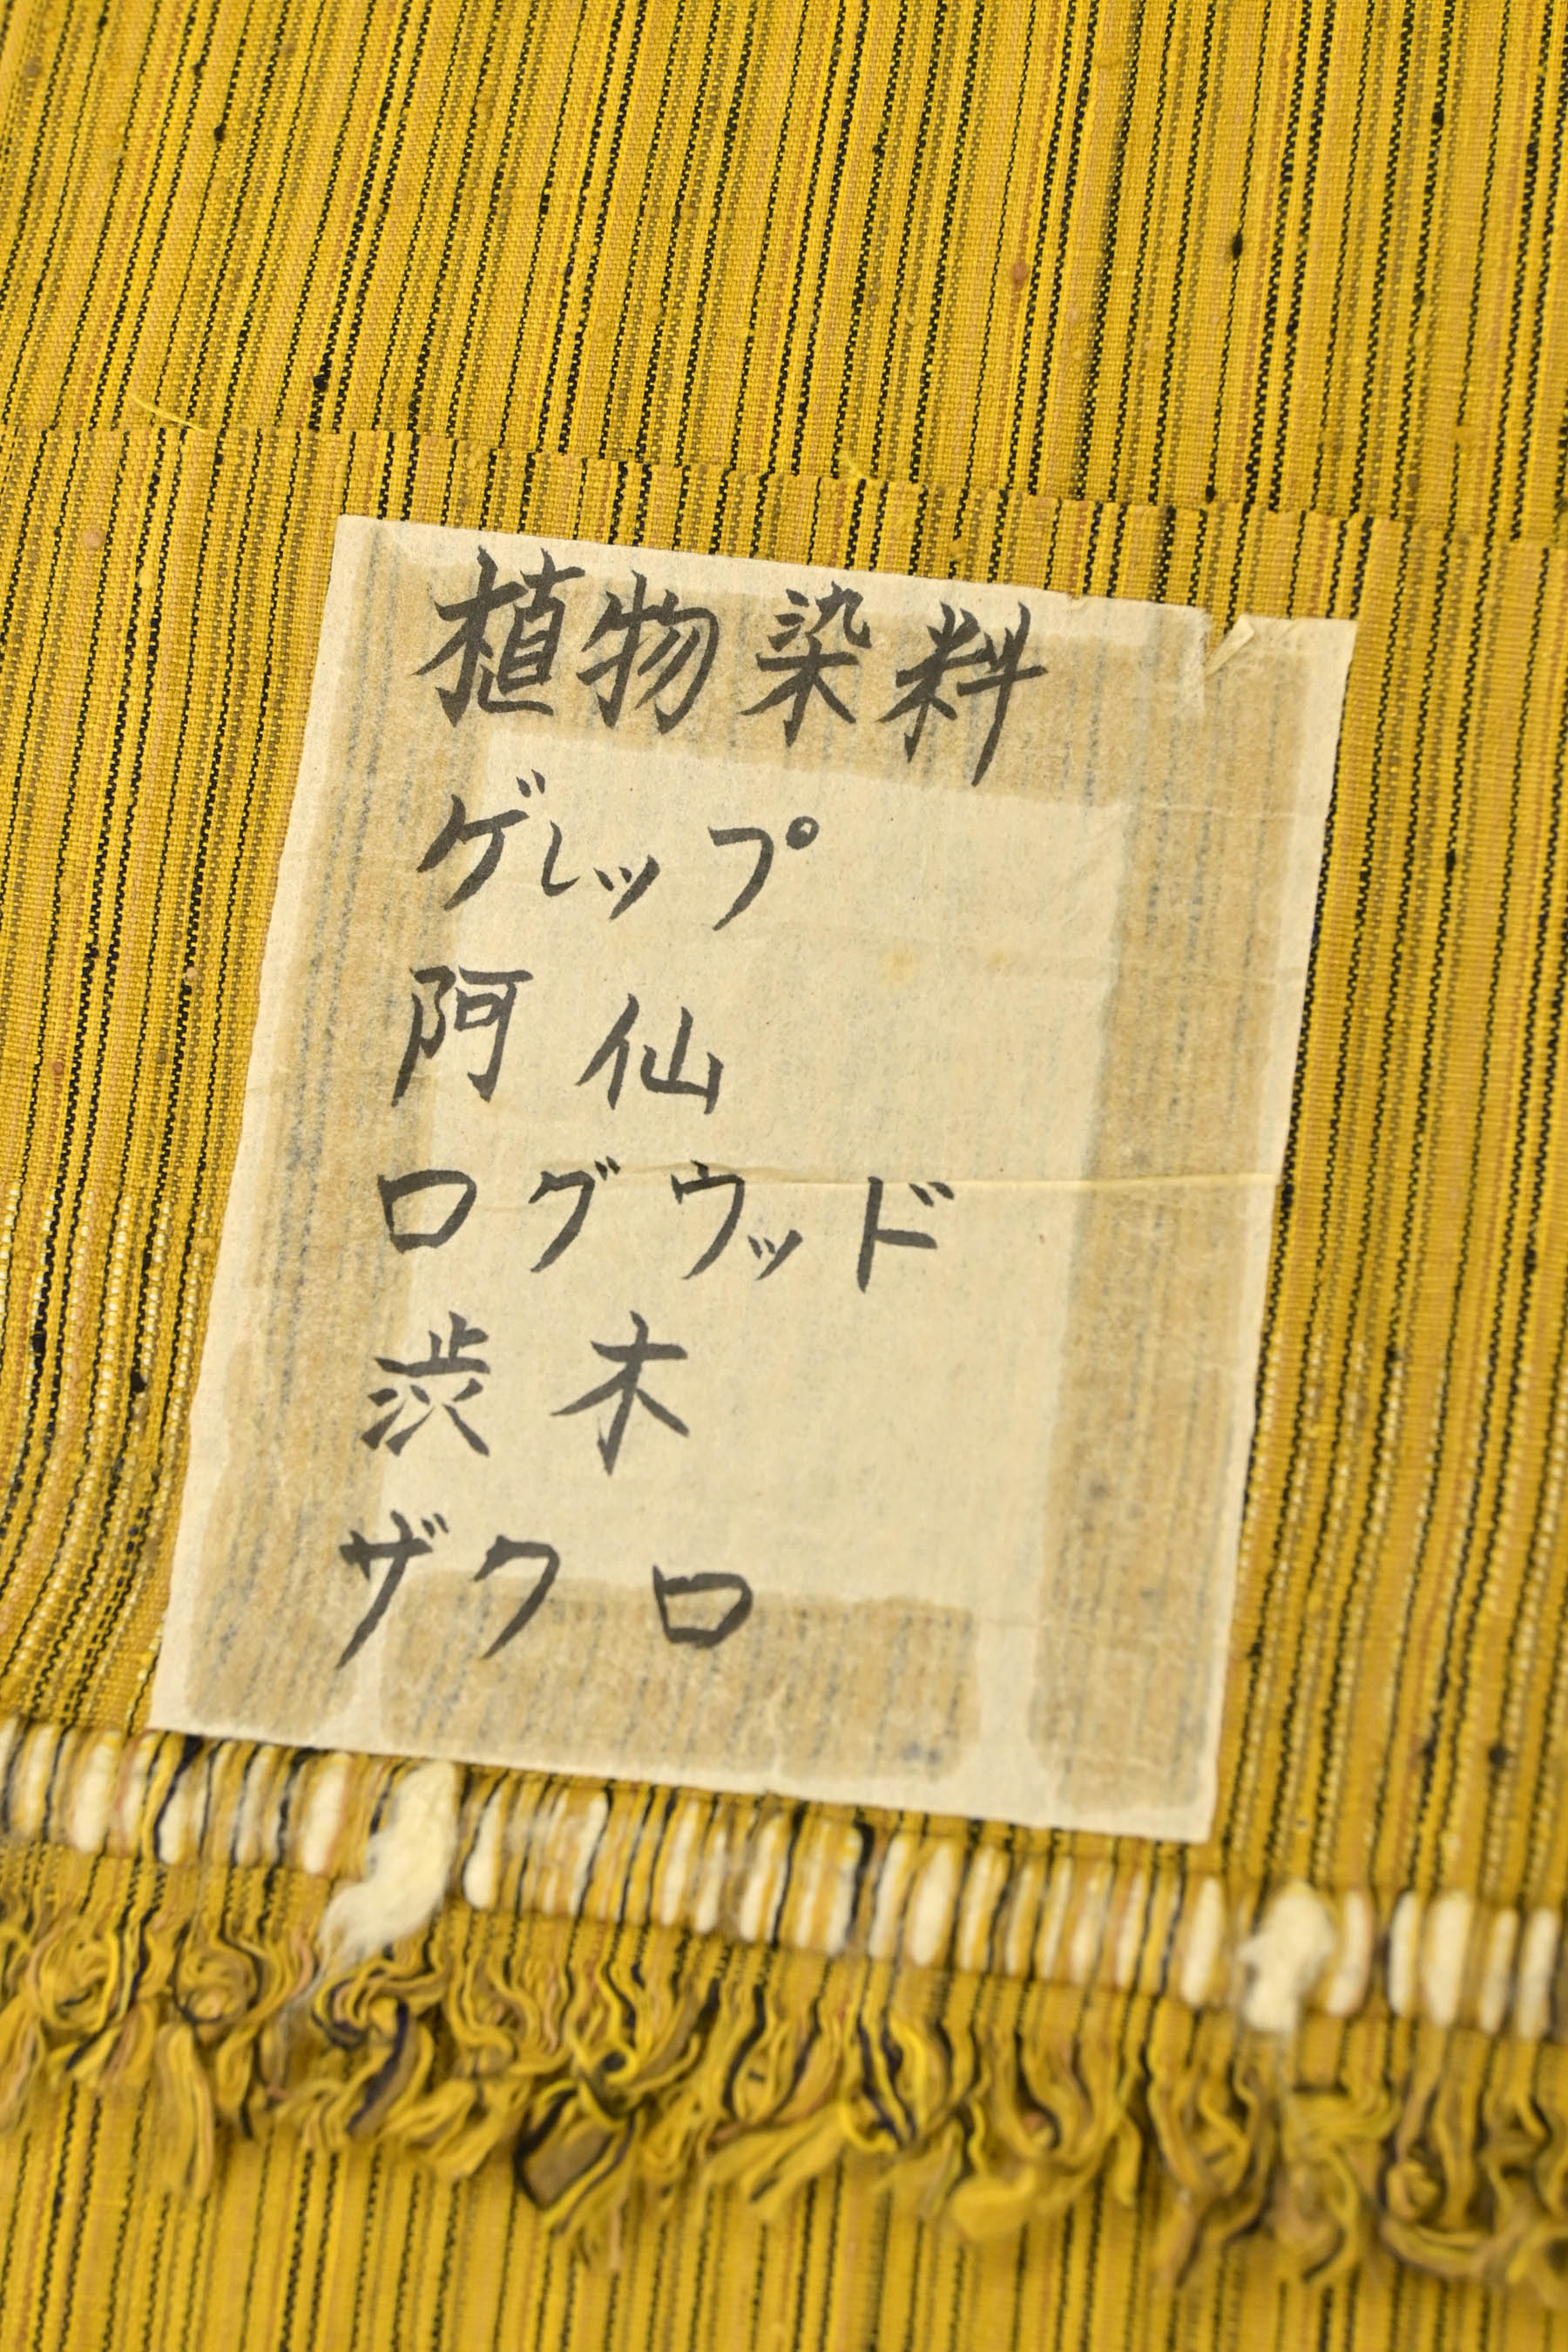 植物染料
ゲレップ
阿仙
ログウッド
渋木
ザクロ